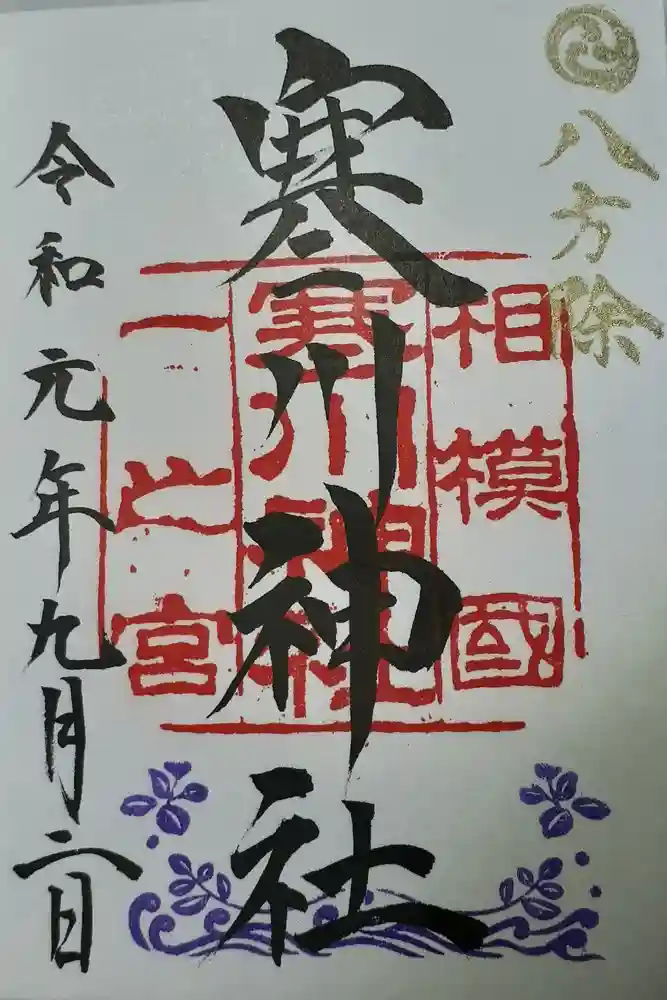 八方除
寒川神社
相模國
寒川神社
一之宮
令和元年九月六日